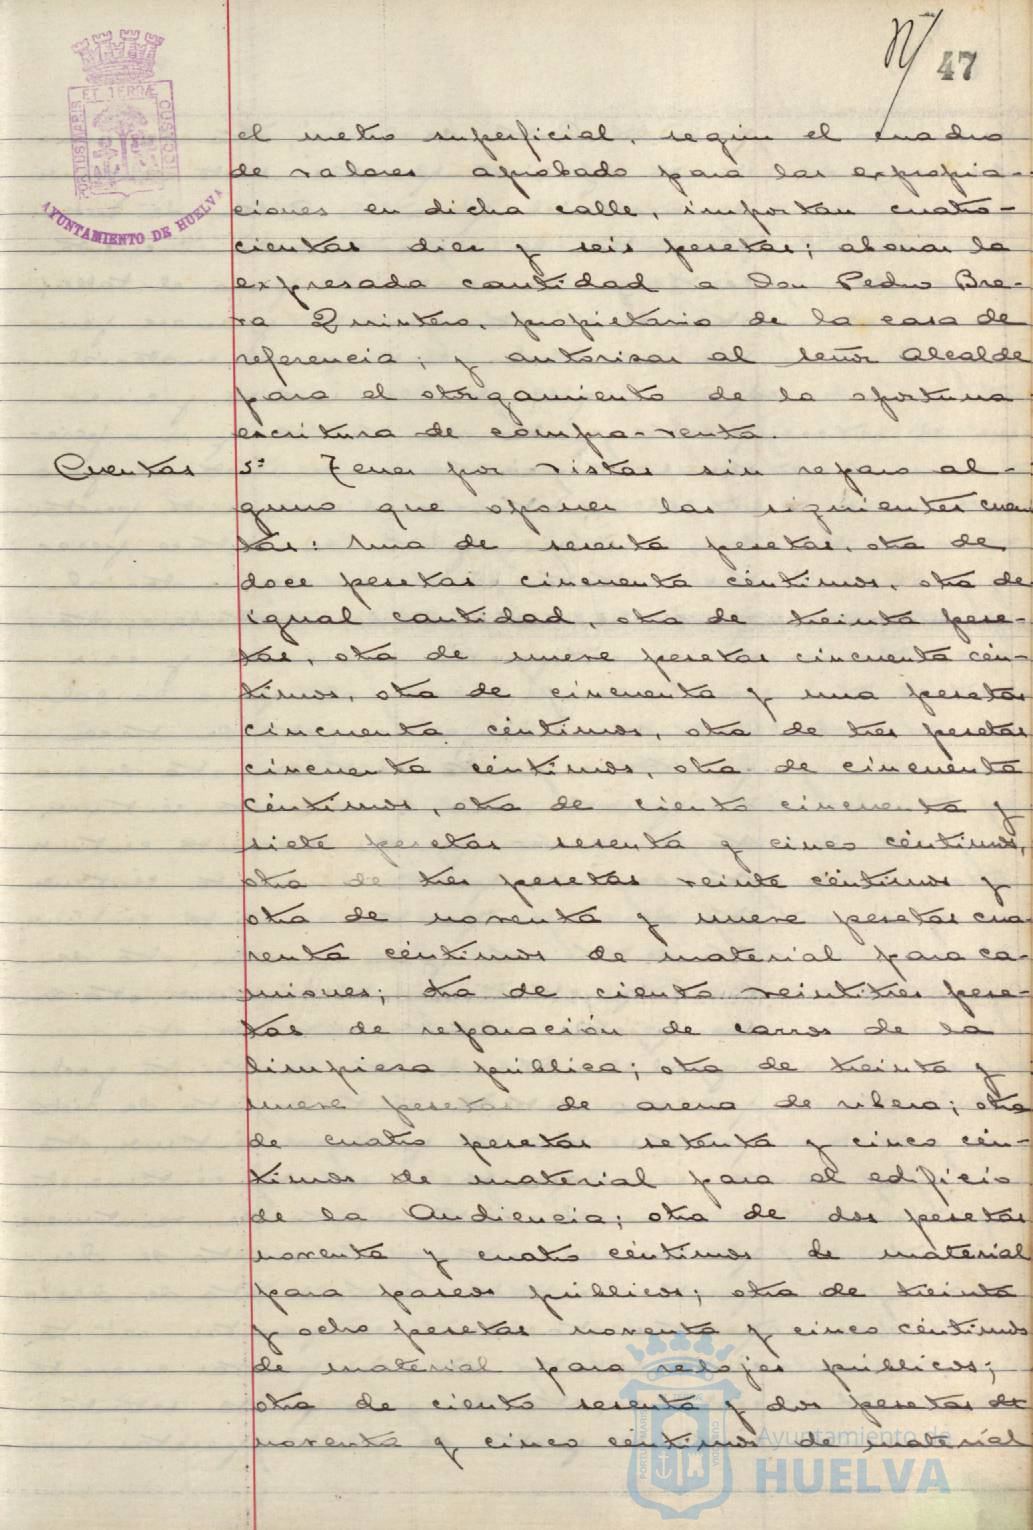 47
PORTUS MARIS
ET TERRÆ
CUSTODIA
AYUNTAMIENTO DE HUELVA
el metro superficial, según el cuadro
de valores aprobado para las expropia-
ciones en dicha calle, importan cuatro-
cientas diez y seis pesetas; abonar la
expresada cantidad a Don Pedro Bre-
va Quintero, propietario de la casa de
referencia; y autorizar al señor Alcalde
para el otorgamiento de la oportuna
escritura de compra-venta.
Cuentas
5º Tener por vistas sin reparo al-
guno que oponer las siguientes cuen
tas: Una de sesenta pesetas, otra de
doce pesetas cincuenta céntimos, otra de
igual cantidad, otra de treinta pese-
tas, otra de nueve pesetas cincuenta cén-
timos, otra de cincuenta y una pesetas
cincuenta céntimos, otra de tres pesetas
cincuenta céntimos, otra de cincuenta
céntimos, otra de ciento cincuenta y
siete pesetas sesenta y cinco céntimos,
otra de tres pesetas veinte céntimos y
otra de noventa y nueve pesetas cua
renta céntimos de material para ca-
miones; otra de ciento veintitres pese-
tas de reparación de carros de la
limpieza pública; otra de treinta y
nueve pesetas de arena de ribera; otra
de cuatro pesetas setenta y cinco cén-
timos de material para el edificio
de la Audiencia; otra de dos pesetas
noventa y cuatro céntimos de material
para paseos públicos; otra de treinta
y ocho pesetas noventa y cinco céntimos
de material para relojes públicos;
otra de ciento sesenta y dos pesetas de
noventa y cinco céntimos de material
Ayuntamiento de
HUELVA